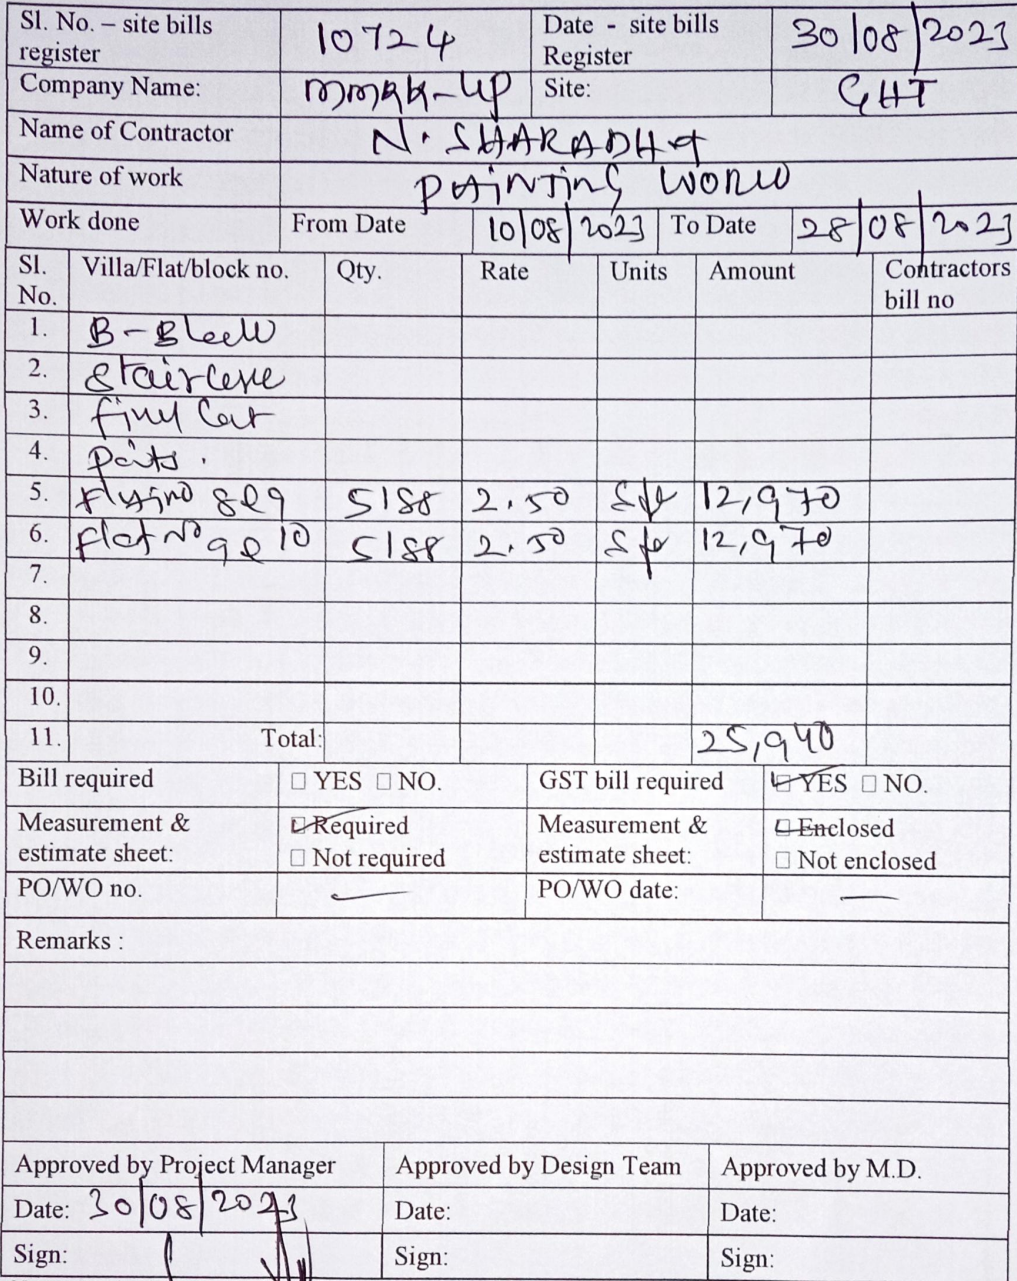 Sl. No. – site bills register 10724 Date - site bills Register 30/08/2023
Company Name: Site: GHT
Name of Contractor N. SHARADHA
Nature of work PAINTING WORK
Work done From Date 10/08/2023 To Date 28/08/2023
Sl. No. Villa/Flat/block no. Qty. Rate Units Amount Contractors bill no
1 B-Block
2. Staircase
3. final Coat
4
5. 8&9 5188 2.50 Sft 12,970
6. Flat No 9&10 5188 2.50 Sft 12,970
7.
8.
9.
10.
11. Total: 25,940
Bill required YES NO. GST bill required YES NO.
Measurement & estimate sheet: Required Not required Measurement & estimate sheet: Enclosed Not enclosed
PO/WO no. — PO/WO date: —
Remarks :
Approved by Project Manager Approved by Design Team Approved by M.D.
Date: 30/08/2023 Date: Date:
Sign: Sign: Sign: